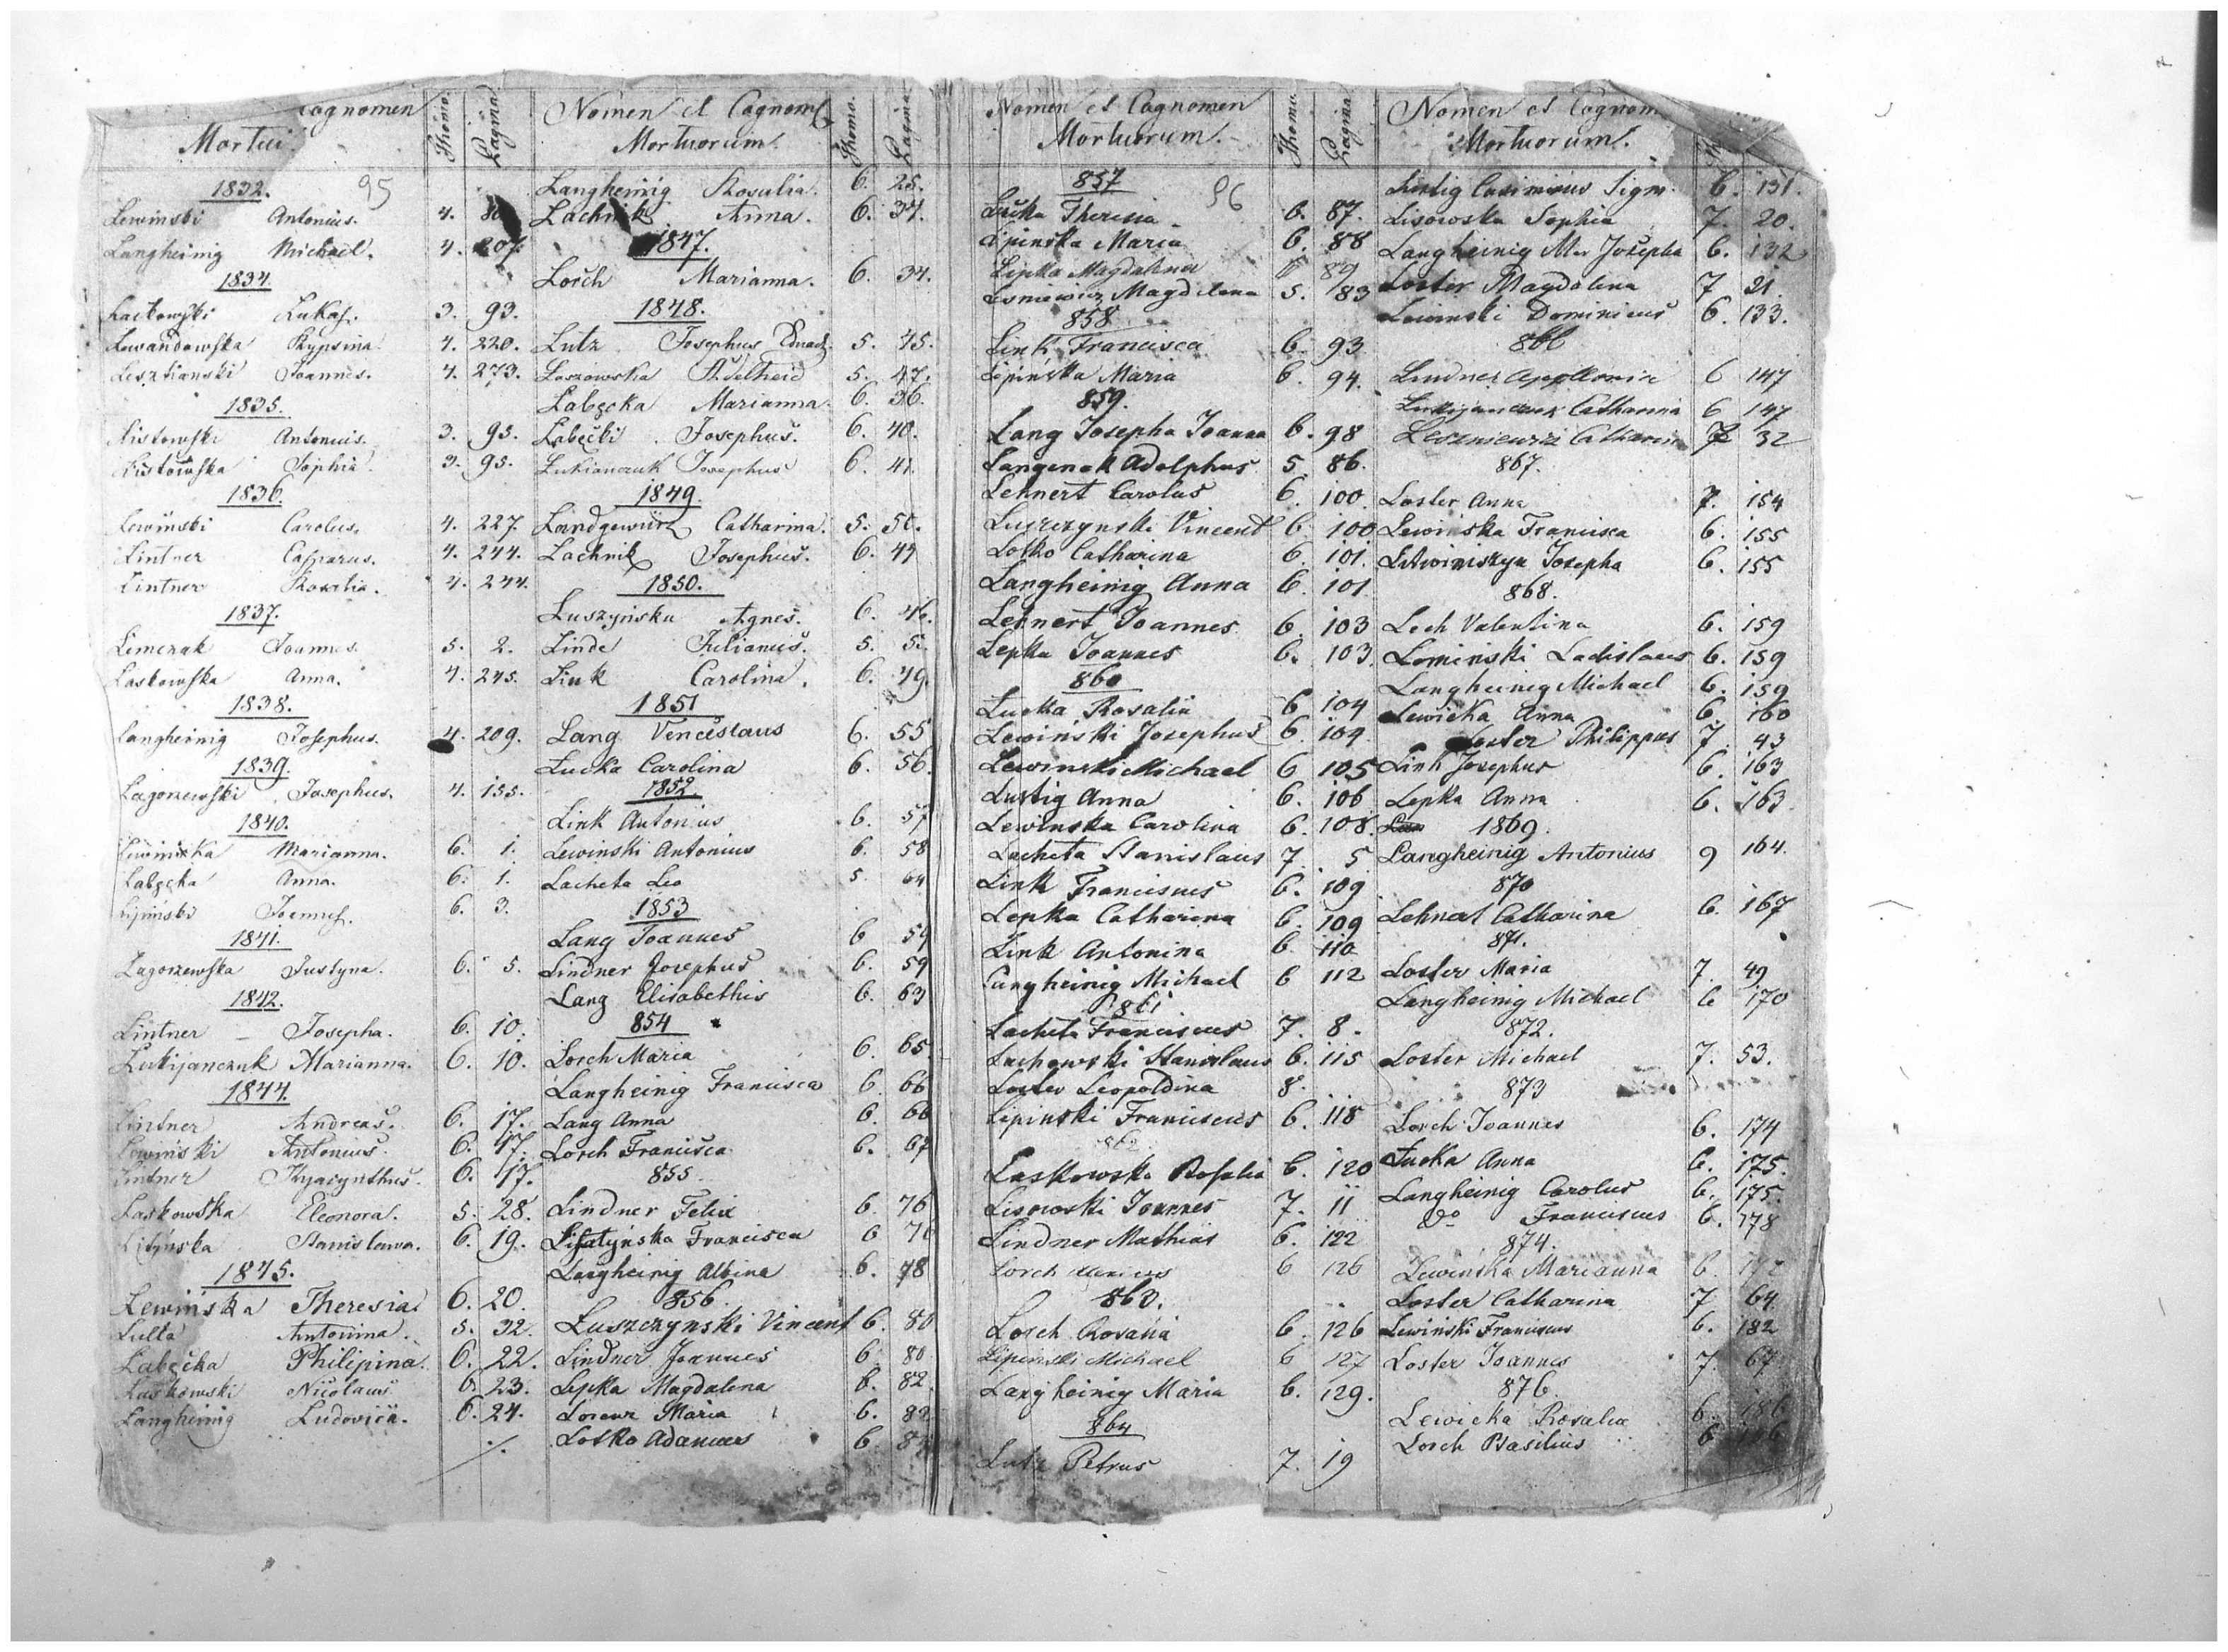 cognomen Mortui Thomo. Pagina
1832. 95
Lewinski Antonius. 4.
Langheinig Michael. 4. 207.
1834.
Lackowski Lukas. 3. 93.
Lewandowska 4. 220.
Joannes. 4. 273.
1835.
Listowski Antonius. 3. 95.
Listowska Sophia. 3. 95.
1836.
Lewinski Carolus. 4. 227.
Lintner Casparus. 4. 244.
Lintner Rosalia. 4. 244.
1837.
Limerak Joannes. 5. 2.
Laskowska Anna. 4. 245.
1838.
Langheinig Josephus. 4. 209.
1839.
Lagorzewski Josephus. 4. 155.
1840.
Lewinska Marianna. 6. 1.
Labęcka Anna. 6. 1.
Lipiński 6. 3.
1841.
Lagorzewska Justyna. 6. 5.
1842.
Lintner Josepha. 6. 10.
Lukijanczuk Marianna. 6. 10.
1844.
Lintner Andreas. 6. 17.
Lewiński Antonius. 6. 17.
Lintner Hyacynthus. 6. 17.
Laskowska Eleonora. 5. 28.
Stanislawa. 6. 19.
1845.
Lewińska Theresia 6. 20.
Antonina. 5. 32.
Labęcka Philipina. 6. 22.
Laskowski Nicolaus 6. 23.
Langheinig Ludovica. 6. 24.
Nomen et Cognom Mortuorum. Thomo. Pagina
Langheinig Rosalia. 6. 25.
Lachnik Anna. 6. 34.
1847.
Lorch Marianna. 6. 34.
1848.
Lutz Josephus Eduard. 5. 45.
Loszowska Adelheid 5. 47.
Labęcka Marianna. 6. 36.
Labęcki Josephus. 6. 40.
Lukianczuk Josephus 6. 41.
1849.
Landgewürz Catharina. 5. 50.
Lachnik Josephus. 6. 49
1850.
Luszyńska Agnes. 6. 46.
Linde Julianus. 5. 5.
Link Carolina. 6. 49.
1851
Lang Venceslaus 6. 55
Lucka Carolina 6. 56.
1852
Link Antonius 6. 57
Lewinski Antonius 6. 58
Lacheta Leo 5. 64
1853
Lang Joannes 6 59
Lindner Josephus 6. 59
Lang Elisabethis 6. 63
854
Lorch Maria 6. 65.
Langheinig Francisca 6. 66
Lang Anna 6. 66
Lorch Francisca 6. 67
855
Lindner Felix 6. 76
Francisca 6
Langheinig Albina 6. 78
856.
Łuszczynski Vincent 6. 80
Lindner Joannes 6 80
Lepka Magdalena 6. 82
Lorenz Maria 6. 82
Lotko Adamus 6
Nomen et Cognomen Mortuorum. Thomo. Pagina
857 96
Lucka Theresia 6. 87.
Lipinska Maria 6. 88
Lepka Magdalena 6 89
Lesniewicz Magdalena 5. 83
858
Link Francisca 6. 93
Lipinska Maria 6. 94.
859.
Lang Josepha Joanna 6. 98
Langenak Adolphus 5 86.
Lehnert Carolus 6. 100
Luszczynski Vincent 6. 100
Lotko Catharina 6. 101.
Langheinig Anna 6. 101
Lehnert Joannes 6. 103
Lepka Joannes 6. 103
860
Lucka Rosalia 6 104
Lewiński Josephus 6. 104
Lewinski Michael 6 105
Lustig Anna 6. 106
Lewinska Carolina 6. 108.
Lacheta Stanislaus 7. 5
Link Franciscus 6. 109
Lepka Catharina 6. 109
Link Antonina 6. 110
Langheinig Michael 6 112
861
Lacheta Franciscus 7. 8.
Lachowski Stanislaus 6. 115
Loster Leopoldina 8.
Lipinski Franciscus 6. 118
862
Laskowska Rosalia 6. 120
Lisowski Joannes 7. 11
Lindner Mathias 6. 122
Lorch 6 126
863.
Lorch Rosalia 6. 126
Lipinski Michael 6 127
Langheinig Maria 6. 129.
864
Lutz Petrus 7. 19
Nomen et Cognom Mortuorum.
Lustig Casimirus Sigm. 6. 131.
Lisowska Sophia 7. 20.
Langheinig Josepha 6. 132
Loster Magdalena 7 21.
Lewinski Dominicus 6. 133.
866
Lindner Apollonia 6 147
Lukijanczuk Catharina 6 147
Catharina 7 32
867.
Loster Anna 7. 154
Lewinska Francisca 6. 155
Litwiniszyn Josepha 6. 155
868.
Lech Valentina 6. 159
Lominski Ladislaus 6. 159
Langheinig Michael 6. 159
Lewicka Anna 6. 160
Loster Philippus 7. 43
Link Josephus 6. 163
Lepka Anna 6. 163
1869.
Langheinig Antonius 9 164.
870
Lehnert Catharina 6. 167
871.
Loster Maria 7. 49
Langheinig Michael 6 170
872.
Loster Michael 7. 53.
873
Lorch Joannes 6. 174
Lucka Anna 6. 175.
Langheinig Carolus 6. 175.
do Franciscus 6. 178
874.
Lewinska Marianna 6.
Loster Catharina 7 64
Lewiński Franciscus 6. 182
Loster Joannes 7. 67
876.
Lewicka Rosalia 6. 186
Lorch Basilius 6